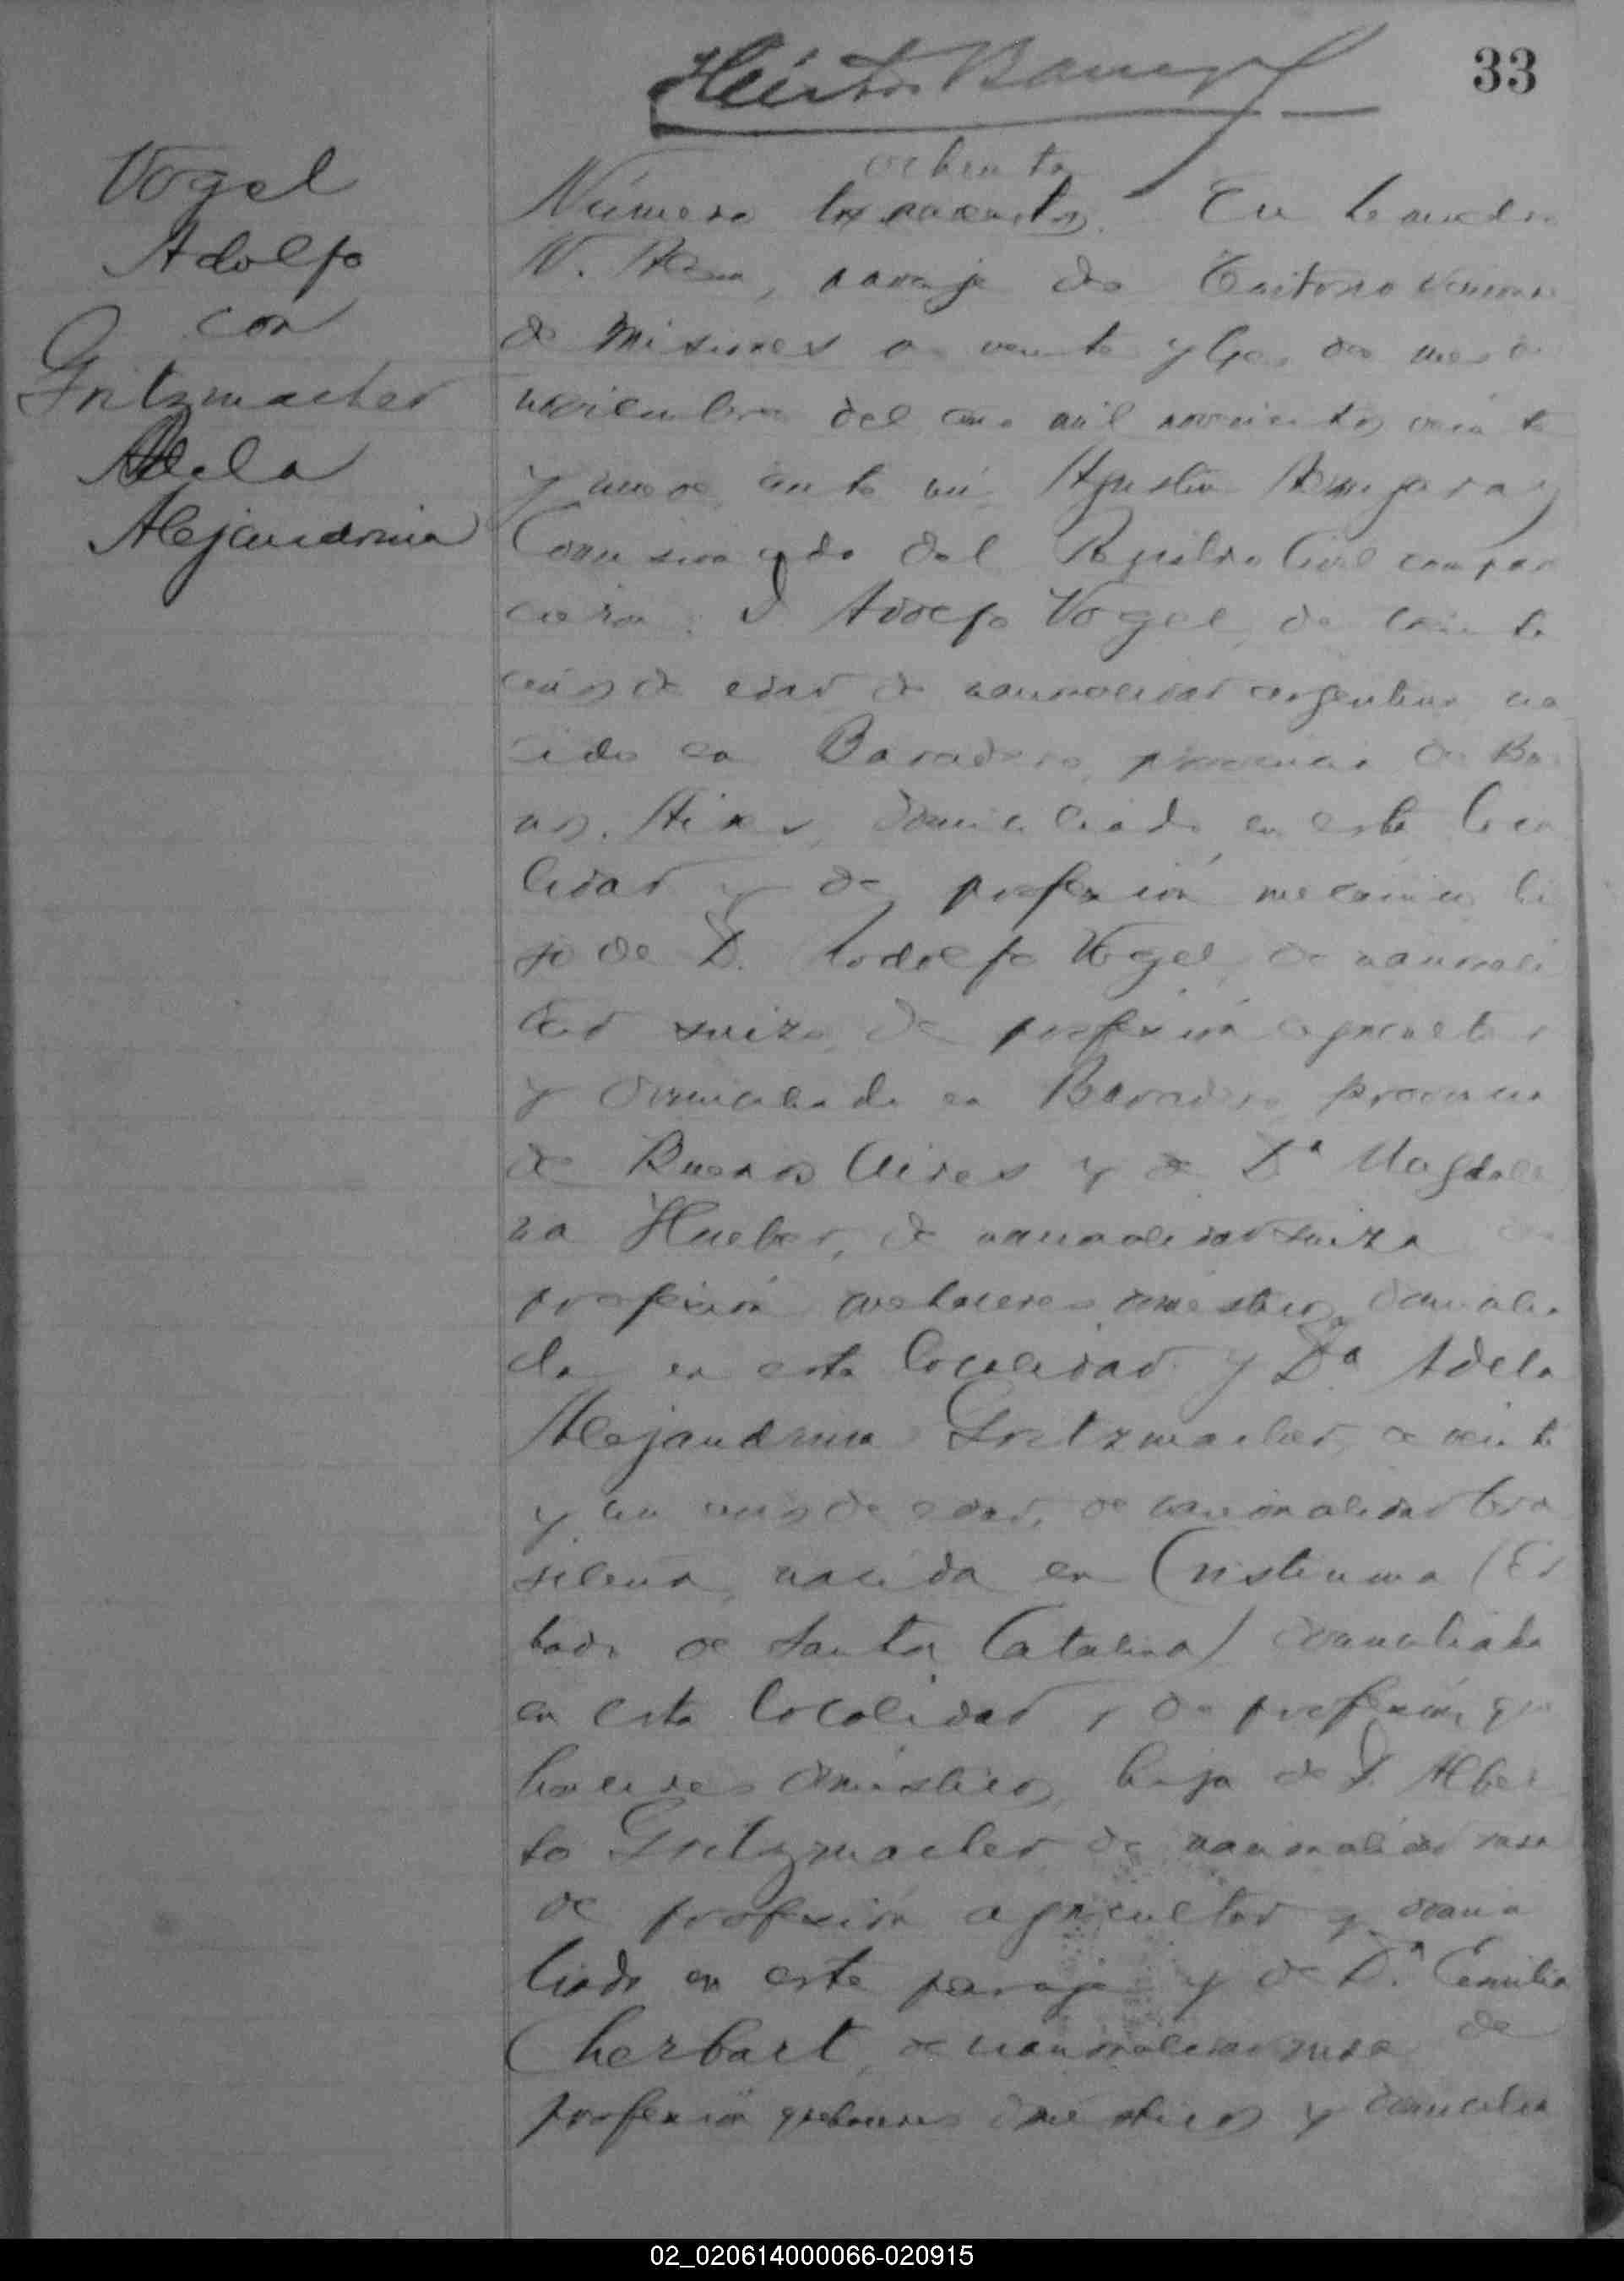 33
Vogel
Adolfo
con
Gritzmacher
Adela
Alejandrina
ochenta
Número En Leandro
N. Alem, paraje de Territorio Nacional
de Misiones a veinte y del mes de
noviembre del año mil novecientos veinte
y nueve, ante mí, Agustín
Comisionado del Registro Civil compar
D. Adolfo Vogel, de
años de edad de nacionalidad argentino na
cido en Baradero, provincia de Bue
nos Aires, domiciliado en esta loca
lidad y de profesión mecánico hi
jo de D. Rodolfo Vogel, de nacionali
dad suizo, de profesión agricultor
y domiciliado en Baradero provincia
de Buenos Aires y de Dª Magdale
na Hueber, de nacionalidad suiza de
profesión quehaceres domésticos, domicilia
da en esta localidad y Dª Adela
Alejandrina Gritzmacher, de veinte
y un años de edad, de nacionalidad bra
sileña, nacida en Cristiuma (Es
tado de Santa Catalina) domiciliada
en esta localidad, de profesión que
haceres domésticos, hija de D. Alber
to Gritzmacher de nacionalidad rusa
de profesión agricultor y domici
liado en este paraje y de Dª Emilia
Cherbart, de nacionalidad rusa de
profesión quehaceres domésticos y domicilia
02_020614000066-020915